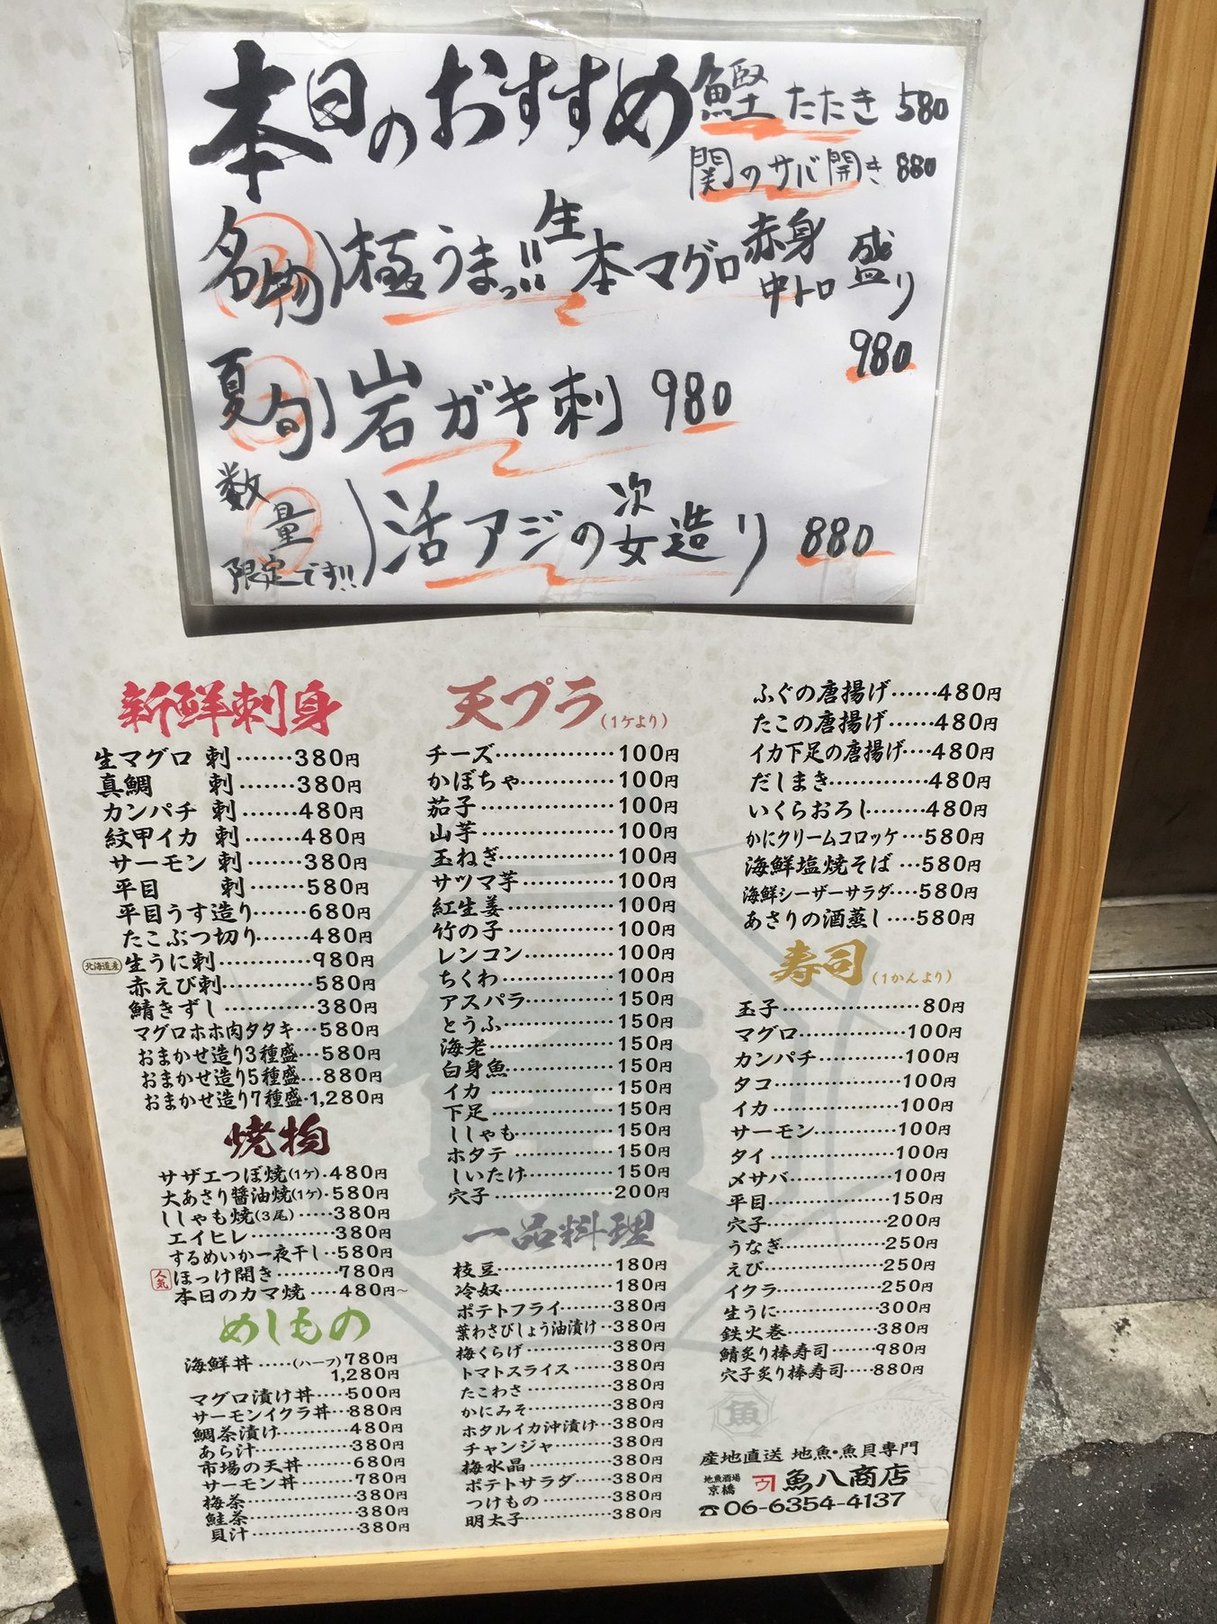 本日のおすすめ
鰹たたき 580
関のサバ開き 880
名物 極うまっ!! 生本マグロ 赤身 中トロ 盛り
980
夏旬 岩ガキ刺 980
数量限定です!! 活アジの 造り 880
新鮮刺身
生マグロ 刺………380円
真鯛 刺………380円
カンパチ 刺………480円
紋甲イカ 刺………480円
サーモン 刺………380円
平目 刺………580円
平目うす造り………680円
たこぶつ切り………480円
北海道産 生うに刺………980円
赤えび刺………580円
鯖きずし………380円
マグロホホ肉タタキ…580円
おまかせ造り3種盛…580円
おまかせ造り5種盛…880円
おまかせ造り7種盛・1,280円
焼物
サザエつぼ焼(1ケ)・480円
大あさり醤油焼(1ケ)・580円
ししゃも焼(3尾)……380円
エイヒレ………380円
するめいか一夜干し‥580円
人気 ほっけ開き………780円
本日のカマ焼……480円~
めしもの
海鮮丼……(ハーフ)780円
1,280円
マグロ漬け丼……500円
サーモンイクラ丼…880円
鯛茶漬け………480円
あら汁………380円
市場の天丼………680円
サーモン丼………780円
梅茶………380円
鮭茶………380円
貝汁………380円
天プラ(1ケより)
チーズ………100円
かぼちゃ………100円
茄子………100円
山芋………100円
玉ねぎ………100円
サツマ芋………100円
紅生姜………100円
竹の子………100円
レンコン………100円
ちくわ………100円
アスパラ………150円
とうふ………150円
海老………150円
白身魚………150円
イカ………150円
下足………150円
ししゃも………150円
ホタテ………150円
しいたけ………150円
穴子………200円
一品料理
枝豆………180円
冷奴………180円
ポテトフライ………380円
葉わさびしょう油漬け‥380円
梅くらげ………380円
トマトスライス……380円
たこわさ………380円
かにみそ………380円
ホタルイカ沖漬け…380円
チャンジャ………380円
梅水晶………380円
ポテトサラダ………380円
つけもの………380円
明太子………380円
ふぐの唐揚げ……480円
たこの唐揚げ……480円
イカ下足の唐揚げ…480円
だしまき………480円
いくらおろし……480円
かにクリームコロッケ…580円
海鮮塩焼そば…580円
海鮮シーザーサラダ…580円
あさりの酒蒸し…580円
寿司(1かんより)
玉子………80円
マグロ………100円
カンパチ………100円
タコ………100円
イカ………100円
サーモン………100円
タイ………100円
〆サバ………100円
平目………150円
穴子………200円
うなぎ………250円
えび………250円
イクラ………250円
生うに………300円
鉄火巻………380円
鯖炙り棒寿司……980円
穴子炙り棒寿司……880円
魚
産地直送 地魚・魚貝専門
地魚酒場 京橋 魚八商店
☎06-6354-4137